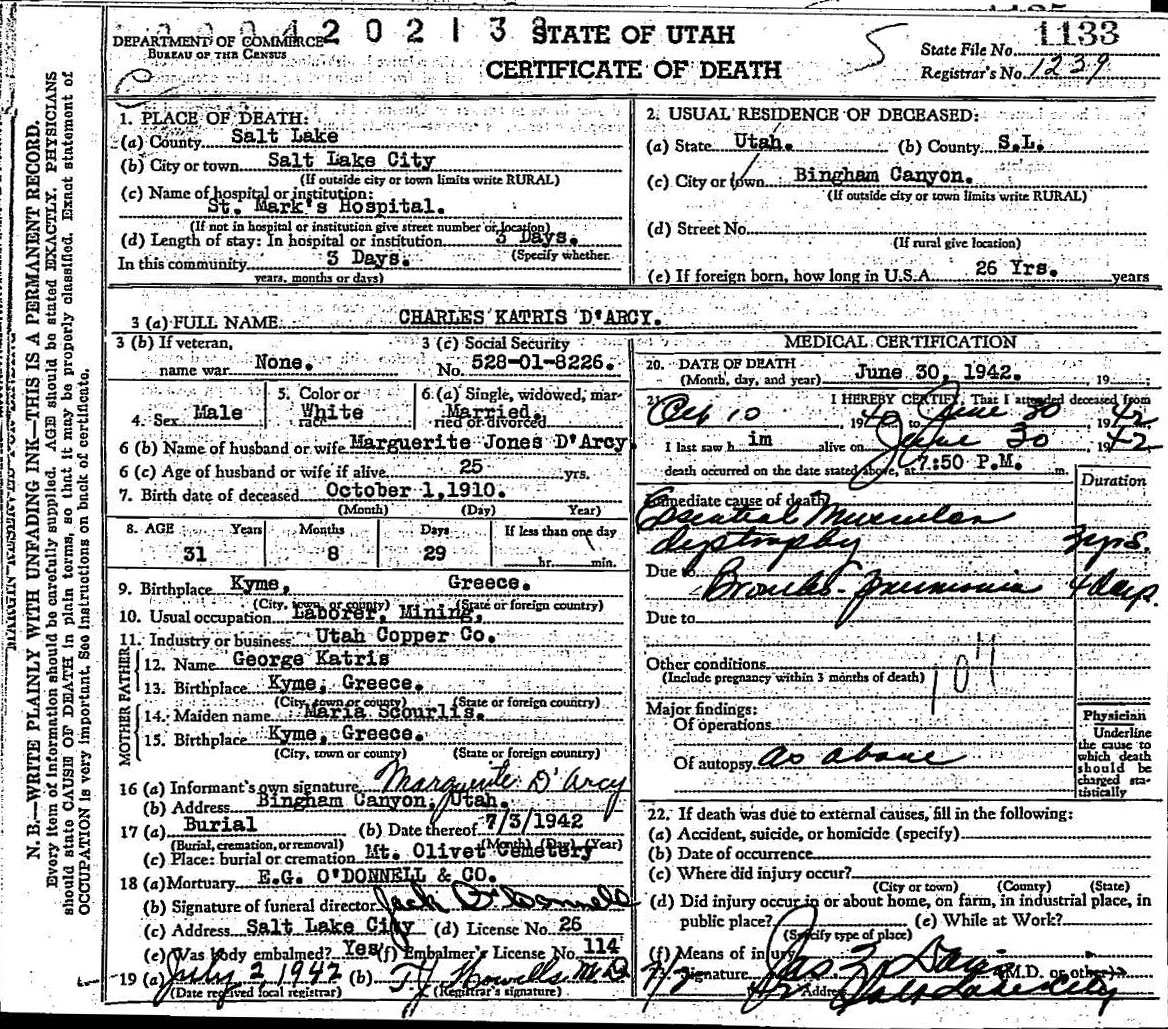 2 0 2 1 3
DEPARTMENT OF COMMERCE
BUREAU OF THE CENSUS
STATE OF UTAH
CERTIFICATE OF DEATH
5
State File No. 1133
Registrar's No. 1239
N. B.—WRITE PLAINLY WITH UNFADING INK—THIS IS A PERMANENT RECORD.
Every item of information should be carefully supplied. AGE should be stated EXACTLY. PHYSICIANS
should state CAUSE OF DEATH in plain terms, so that it may be properly classified. Exact statement of
OCCUPATION is very important. See instructions on back of certificate.
1. PLACE OF DEATH:
(a) County Salt Lake
(b) City or town Salt Lake City
(If outside city or town limits write RURAL)
(c) Name of hospital or institution:
St. Mark's Hospital.
(If not in hospital or institution give street number or location)
(d) Length of stay: In hospital or institution 3 Days.
(Specify whether
In this community 3 Days.
years, months or days)
2. USUAL RESIDENCE OF DECEASED:
(a) State Utah. (b) County S.L.
(c) City or town Bingham Canyon.
(If outside city or town limits write RURAL)
(d) Street No.
(If rural give location)
(e) If foreign born, how long in U.S.A. 26 Yrs. years
3 (a) FULL NAME CHARLES KATRIS D'ARCY.
3 (b) If veteran, name war None.
3 (c) Social Security No. 528-01-8226.
4. Sex Male
5. Color or race White
6. (a) Single, widowed, married or divorced Married.
6 (b) Name of husband or wife Marguerite Jones D'Arcy.
6 (c) Age of husband or wife if alive 25 yrs.
7. Birth date of deceased October 1,1910.
(Month) (Day) Year)
8. AGE Years Months Days If less than one day
31 8 29 hr. min.
9. Birthplace Kyme, Greece.
(City, town, or county) (State or foreign country)
10. Usual occupation Laborer, Mining,
11. Industry or business Utah Copper Co.
FATHER
12. Name George Katris
13. Birthplace Kyme, Greece.
(City, town or county) (State or foreign country)
MOTHER
14. Maiden name Maria Scourlis.
15. Birthplace Kyme, Greece.
(City, town or county) (State or foreign country)
16 (a) Informant's own signature Marguerite D'Arcy
(b) Address Bingham Canyon, Utah.
17 (a) Burial (b) Date thereof 7/3/1942
(Burial, cremation, or removal) (Month) (Day) (Year)
(c) Place: burial or cremation Mt. Olivet Cemetery
18 (a) Mortuary E.G. O'DONNELL & CO.
(b) Signature of funeral director Jack O'Donnell
(c) Address Salt Lake City (d) License No. 26
(e) Was body embalmed? Yes (f) Embalmer's License No. 114
19 (a) July 2, 1942 (b) T J Howells M.D.
(Date received local registrar) (Registrar's signature)
MEDICAL CERTIFICATION
20. DATE OF DEATH
(Month, day, and year) June 30, 1942. , 19
21. I HEREBY CERTIFY, That I attended deceased from
10 , 1940 to June 30 , 1942
I last saw him alive on June 30 , 1942
death occurred on the date stated above, at 7:50 P.M. m.
Duration
Immediate cause of death
Essential Muscular
dystrophy yrs.
Due to Broncho-pneumonia 4 days.
Due to
Other conditions
(Include pregnancy within 3 months of death)
Major findings:
Of operations
Of autopsy as above
Physician
Underline
the cause to
which death
should be
charged sta-
tistically
22. If death was due to external causes, fill in the following:
(a) Accident, suicide, or homicide (specify)
(b) Date of occurrence
(c) Where did injury occur?
(City or town) (County) (State)
(d) Did injury occur in or about home, on farm, in industrial place, in
public place? (e) While at Work?
(Specify type of place)
(f) Means of injury
Signature Jas Z Davis (M.D. or other)
Address Salt Lake City